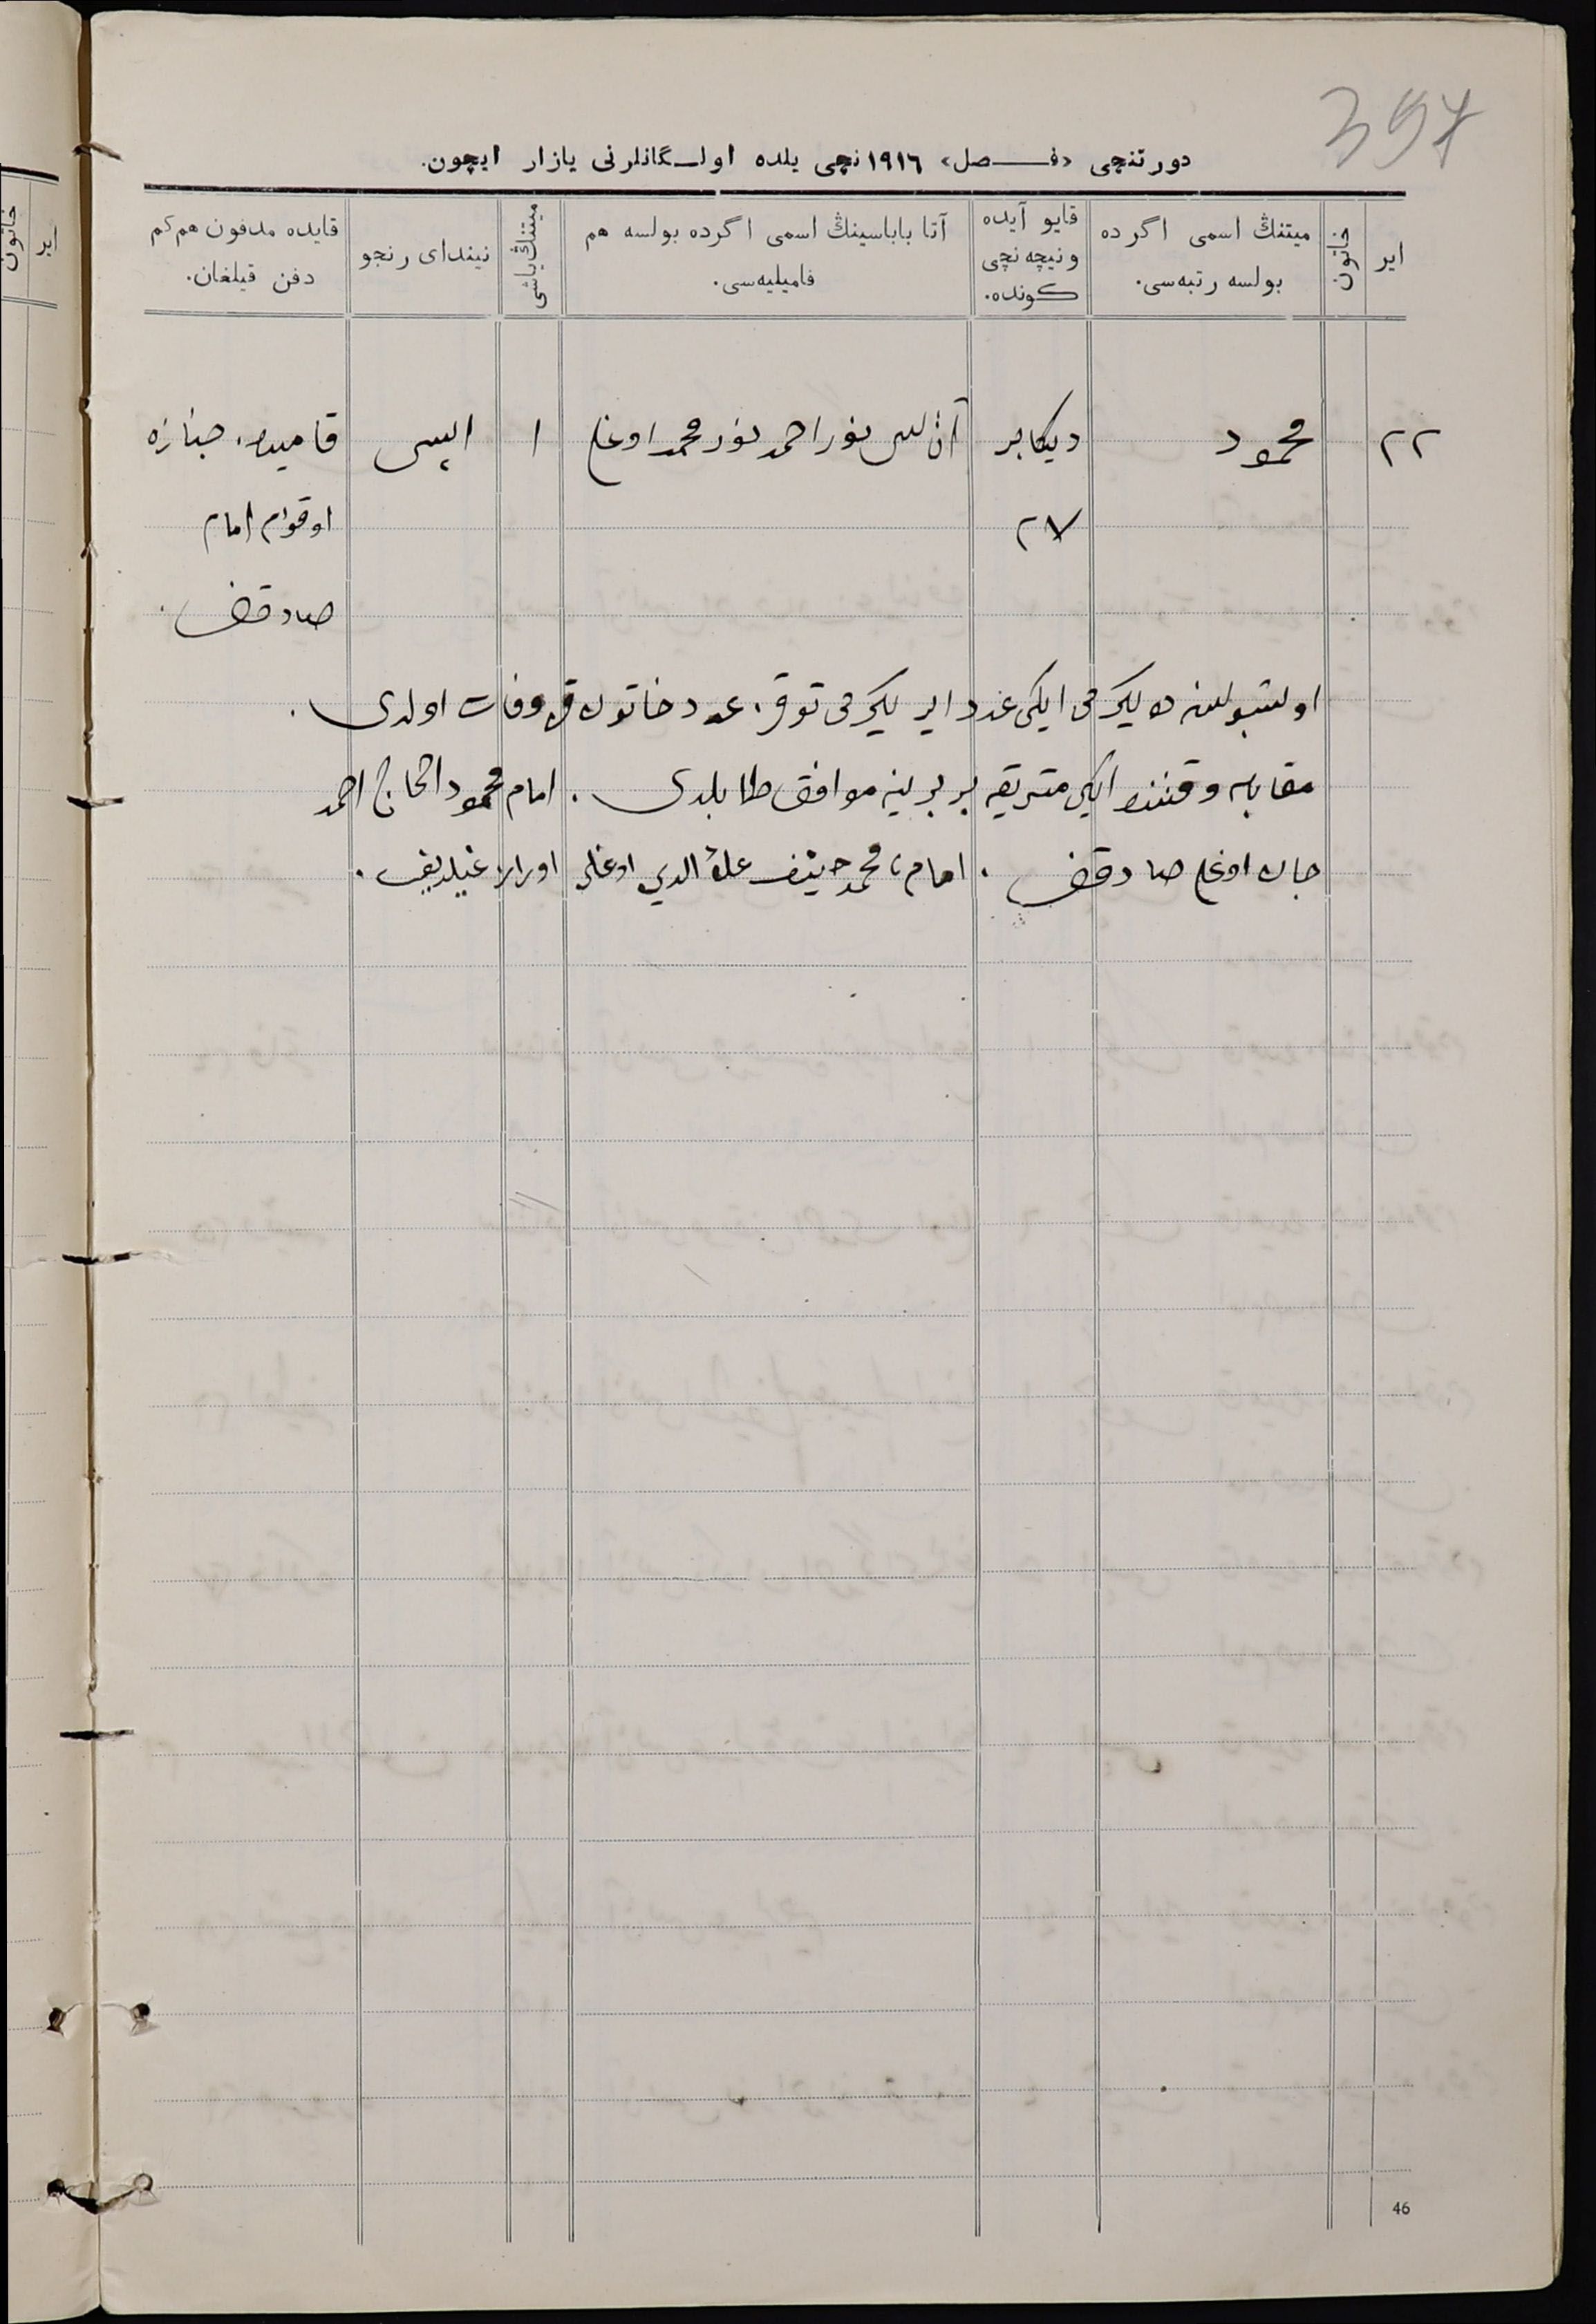 397
دورتنچی «فـــصل» ١٩١٦نچی یلده اولـگانلرنی یازار ایچون.
ایر
خاتون
میتنڭ اسمی اگرده بولسه رتبه‌سی.
قایو آیده ونیچه‌نچی كونده.
آتا باباسینڭ اسمی اگرده بولسه هم فامیلیه‌سی.
میتنڭ یاشی
نیندای رنجو
قایده مدفون هم‌كم دفن قیلغان.
٢٢ محمود دیكابر نور احمد نور محمد اوغلی ١ ایسی جنازه
٢٧ اوقوم امام
صادقف.
اوشبو یلنده یكرمی ایكی عدد ایر یكرمی توقز عدد خاتون وفات اولدی.
مقابله وقتنده ایكی متریقه بربرینه موافق طابلدی. امام محمود الحاج احمد
جان اوغلی صادقف. امام محمد حنیف علاء الدین اوغلی
46
ایر
خاتون